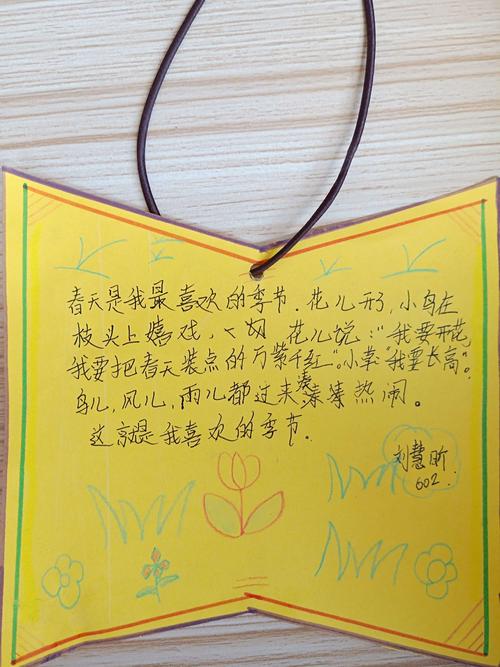 春天是我最喜欢的季节.花儿开了,小鸟在
枝头上嬉戏,花儿说:"我要开花,
我要把春天装点的万紫千红"。小草"我要长高"。
鸟儿,风儿,雨儿都过来凑凑热闹。
这就是我喜欢的季节.
刘慧昕
602.